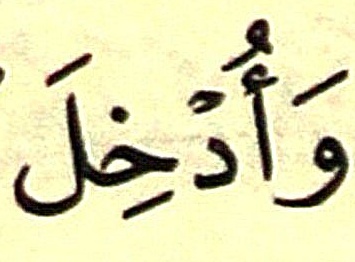 وَأُدْخِلَ